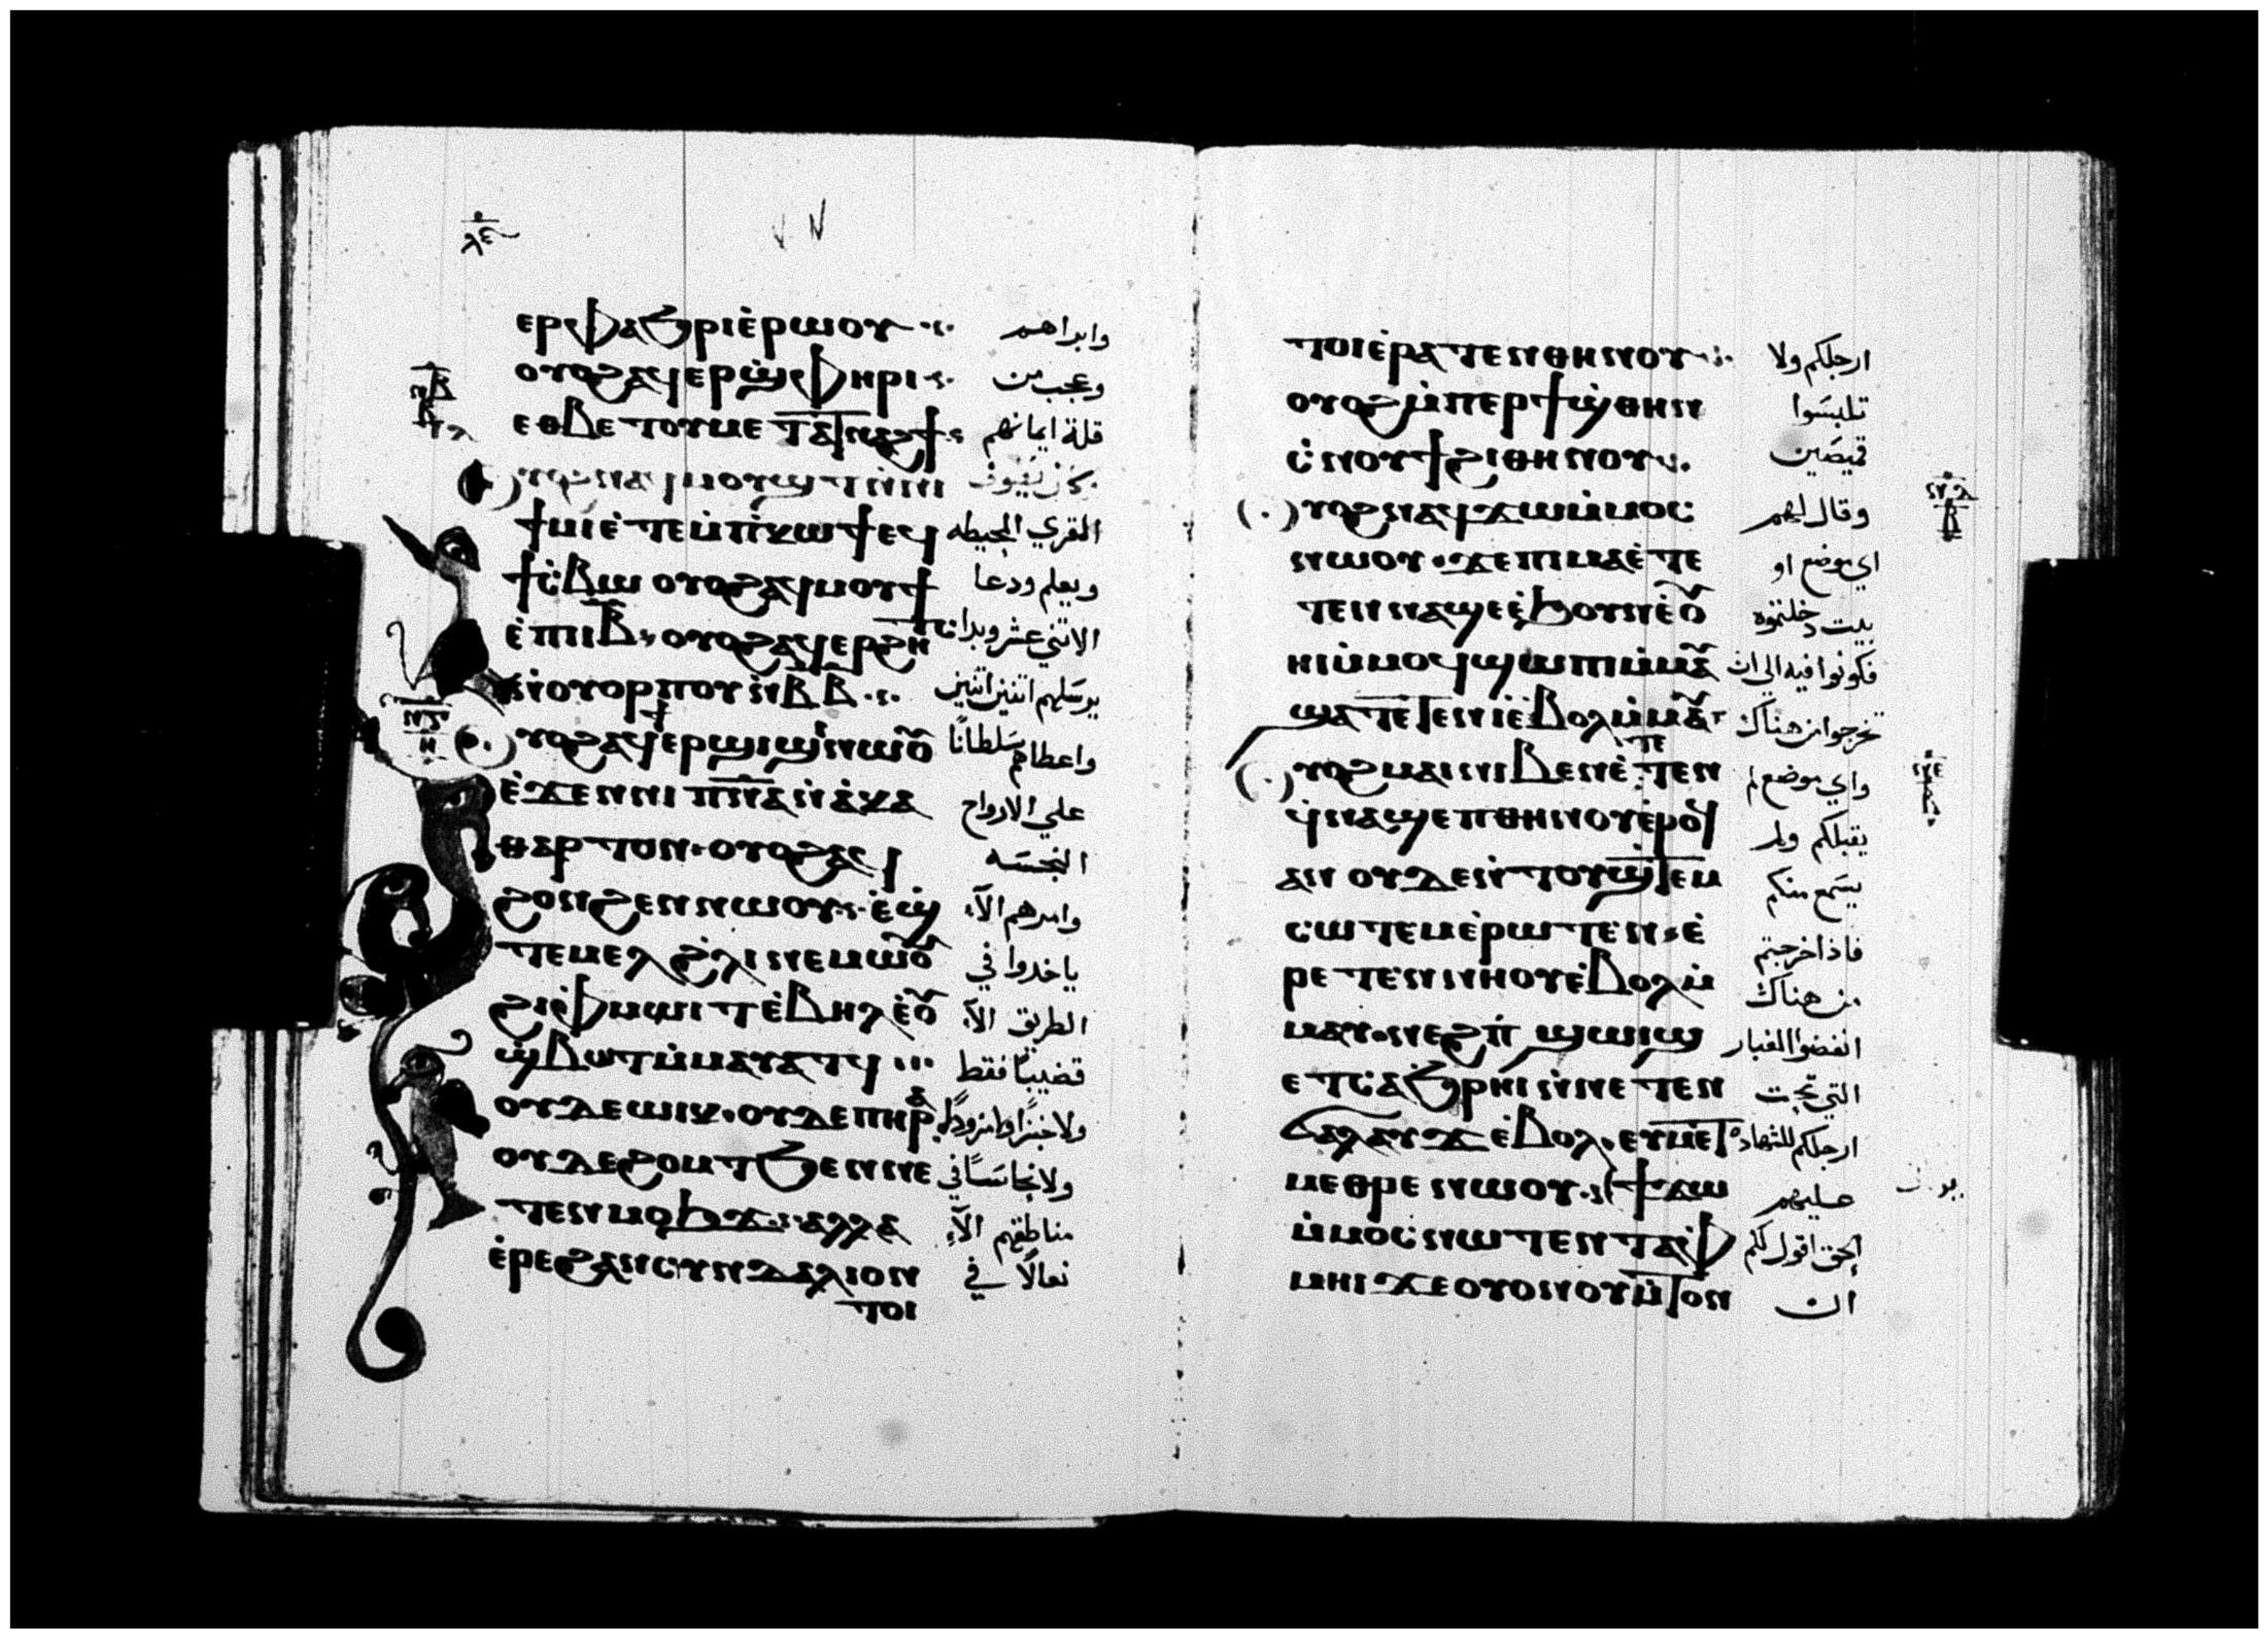 ⲗⲉ
ⲉⲣⲫⲁϧⲣⲓⲉ̀ⲣⲱⲟⲩ وابراهم
ⲟⲩⲟϩⲁϥⲉⲣϣ̀ⲫⲏⲣⲓ وعجب من
ⲉⲑⲃⲉⲧⲟⲩⲙⲉⲧⲁⲧⲛⲁϩϯ قلة ايمانهم
ⲩⲟϩⲛⲁϥⲙⲟⲩϣⲧ
ϯⲙⲓⲉ̀ⲧⲉⲙ̀ⲡⲓⲕⲱϯⲉϥ القري المحيطه
ϯⲥ̀ⲃⲱ ⲟⲩⲟϩⲁϥⲙⲟⲩϯ ويعلم ودعا
ⲉ̀ⲡⲓⲓⲃ ⲟⲩⲟϩⲁϥⲉⲣϩⲏⲧⲥ الاثني عشر وبدا
ⲛ̀ⲟⲩⲟⲣⲡⲟⲩ ⲛ̀ⲃ ⲃ يرسلهم اثنين اثنين
ⲩⲟϩⲁϥϯⲉⲣϣⲓϣⲓⲛⲱⲟⲩ واعطاهم سلطانًا
ⲉ̀ϫⲉⲛⲛⲓⲡⲛ̅ⲁ̅ⲛ̀ⲁ̀ⲕⲁ علي الارواح
ⲑⲁⲣⲧⲟⲛ ⲟⲩⲟϩⲁϥ النجسه
ϩⲟⲛϩⲉⲛⲛⲱⲟⲩ ⲉ̀ϣ̀ وامرهم الآ
ⲧⲉⲙⲉⲗϩ̀ⲗⲓⲛⲉⲙⲱⲟⲩ ياخدوا في
ϩⲓⲫⲙⲱⲓⲧⲉ̀ⲃⲏⲗⲉ̀ⲟⲩ الطريق الآ
ϣ̀ⲃⲱⲧⲙ̀ⲙⲁⲩⲁⲧϥ قضيبًا فقط
ⲟⲩⲇⲉⲱⲓⲕ ⲟⲩⲇⲉⲡⲏⲣⲁ ولا خبزًا ولا مزودًا
ⲟⲩⲇⲉϩⲟⲙⲧϧⲉⲛⲛⲉ ولا نحاسًا في
ⲧⲉⲛⲙⲟϧϫ ⲁⲗⲗⲁ مناطقهم الآ
ⲉ̀ⲣⲉϩⲁⲛⲥⲩⲛⲇⲁⲗⲓⲟⲛ نعالًا في
ⲧⲟⲓ
ⲧⲟⲓⲉ̀ⲣⲁⲧⲉⲛⲑⲏⲛⲟⲩ ارجلكم ولا
ⲟⲩⲟϩⲙ̀ⲡⲉⲣϯϣ̀ⲑⲏⲛ تلبسوا
ⲥ̀ⲛⲟⲩϯϩⲓⲑⲏⲛⲟⲩ قميصين
ⲩⲟϩⲛⲁϥϫⲱⲙ̀ⲙⲟⲥ وقال لهم
ⲛⲱⲟⲩ ϫⲉⲡⲓⲙⲁⲉ̀ⲧⲉ اي موضع او
ⲧⲉⲛⲛⲁϣⲉⲉ̀ϧⲟⲩⲛⲉ̀ⲟⲩ بيت دخلتموه
ⲏⲓⲙ̀ⲙⲟϥϣⲱⲡⲓⲙ̀ⲙⲁⲩ فكونوا فيه الي ان
ϣⲁⲧⲉⲧⲉⲛⲓ̀ⲉ̀ⲃⲟⲗⲙ̀ⲙⲁⲩ تخرجوا من هناك
ⲩⲟϩⲙⲁⲓⲛⲓⲃⲉⲛⲉ̀ⲧⲉⲛ واي موضع لم
ϥ̀ⲛⲁϣⲉⲡⲑⲏⲛⲟⲩⲉ̀ⲣⲟϥ يقبلكم ولم
ⲁⲛ ⲟⲩⲇⲉⲛ̀ⲧⲟⲩϣ̀ⲧⲉⲙ يسمع منكم
ⲥⲱⲧⲉⲙⲉ̀ⲣⲱⲧⲉⲛ ⲉ̀ فاذا خرجتم
ⲣⲉⲧⲉⲛⲛⲏⲟⲩⲉ̀ⲃⲟⲗⲙ̀ من هناك
ⲙⲁⲩ ⲛⲉϩⲡ̀ϣⲱⲓϣ انفضوا الغبار
ⲉⲧⲥⲁϧⲣⲏⲓⲛ̀ⲛⲉⲧⲉⲛ التي تحت
ϭⲁⲗⲁⲩϫ ⲉ̀ⲃⲟⲗ ⲉⲩⲙⲉⲧ ارجلكم للشهاده
ⲙⲉⲑⲣⲉ ⲛⲱⲟⲩ ϯϫⲱ عليهم
ⲙ̀ⲙⲟⲥⲛⲱⲧⲉⲛⲧⲁⲫ الحق اقول لكم
ⲙⲏⲓ ϫⲉⲟⲩⲟⲛⲟⲩⲙ̀ⲧⲟⲛ ان